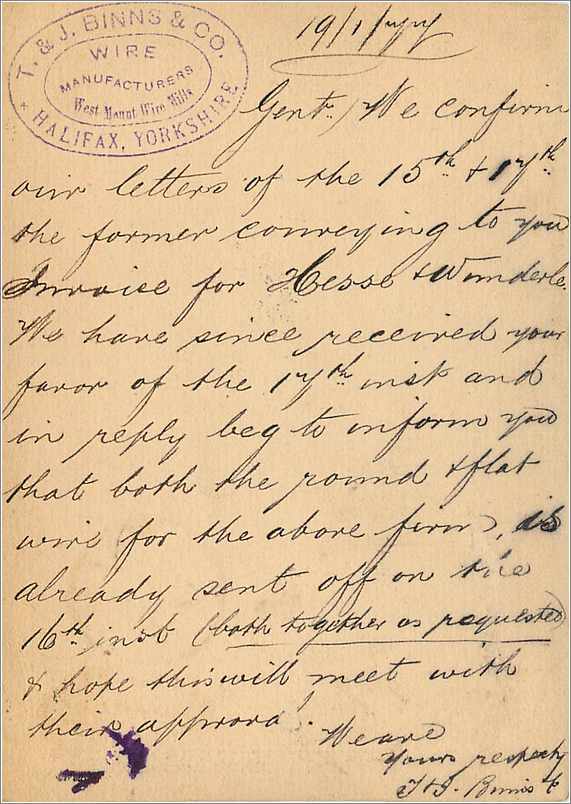 T. & J. BINNS & CO.
WIRE
MANUFACTURERS
West Mount Wire Mills
HALIFAX, YORKSHIRE
19/1/
Gent. / We confirm
our letters of the 15th & 17th
the former conveying to you
Invoice for Hesse & Wunderle.
We have since received your
favor of the 17th inst and
in reply beg to inform you
that both the round & flat
wire for the above firm, is
already sent off on the
16th inst (both together as requested
& hope this will meet with
their approval.
We are
Yours respectly
T & J. Binns & Co